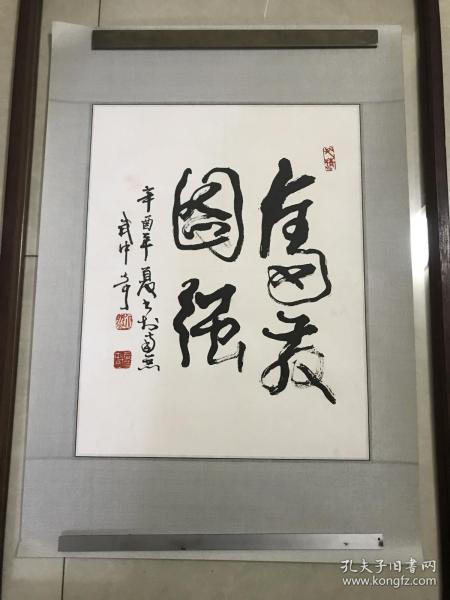 奮发
图强
辛酉年夏书于南京
武中奇
孔夫子旧书网
www.kongfz.com